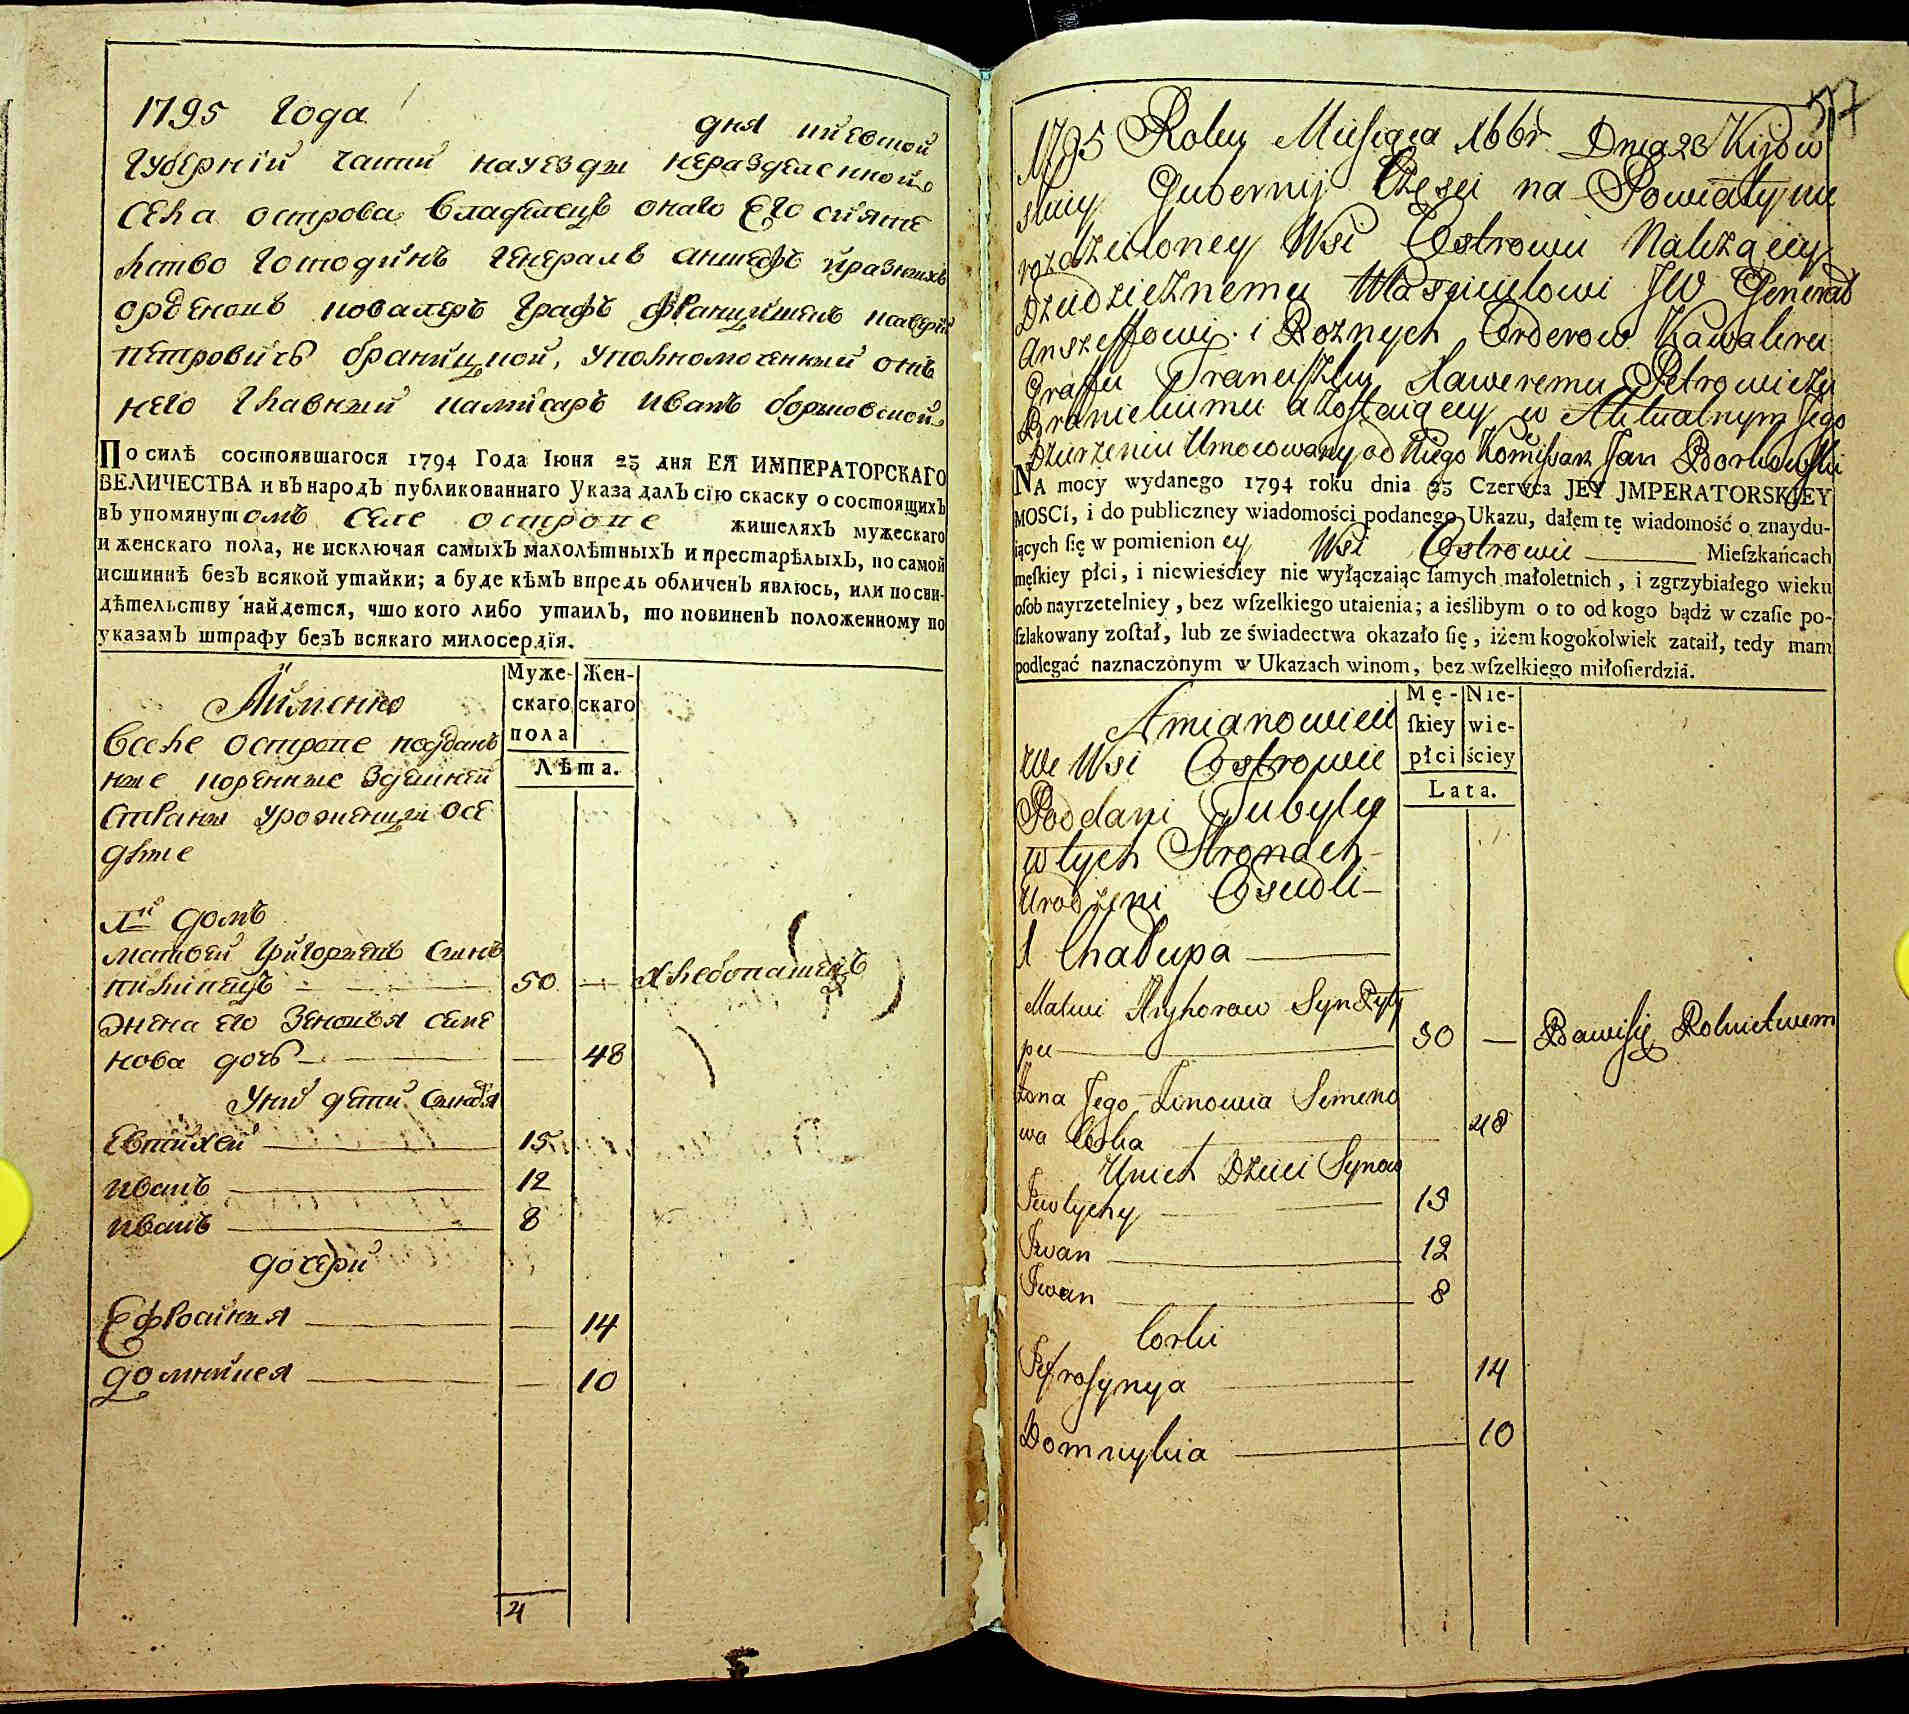 1795 года дня киевской
губернiй части науезди неразделенной
села острова владелецъ онаго Его сияте
лство господинъ генералъ аншефъ иразныхъ
орденовъ ковалеръ графъ францишекъ ксаверiй
петровичъ браницкой, уполномоченный отъ
него главный камисаръ иванъ борковской
По силѣ состоявшагося 1794 Года Iюня 23 дня ЕЯ ИМПЕРАТОРСКАГО
ВЕЛИЧЕСТВА и въ народъ публикованнаго Указа далъ сїю скаску о состоящихъ
въ упомянутомъ селе острове жителяхъ мужескаго
и женскаго пола, не исключая самыхъ малолѣтныхъ и престарѣлыхъ, по самой
истиннѣ безъ всякой утайки; а буде кѣмъ впредь обличенъ явлюсь, или по сви-
дѣтельству найдется, что кого либо утаилъ, то повиненъ положенному по
указамъ штрафу безъ всякаго милосердїя.
Муже- Жен-
скаго скаго
пола
Лѣта.
Аимѣнно
Вселе острове поддан
ные коренные здешней
страны уроженци осе
длые
1й домъ
матвей григорьевъ синъ
50 — хлебопашецъ
жена его зеновья семе
нова дочь — — 48
унихъ дети
Евтихей — 15
иванъ — 12
иванъ — 8
дочери
Ефросиния — 14
домникея — 10
4
57
1795 Roku Miesiąca Xbbr. Dnia 23 Kijow
skiey Gubernij Części na Powiaty nie
rozdzieloney Wsi Ostrowu Należącey
Dziedzicznemu Włascicielowi JW Generał
Anszeffowi i Roznych Orderow Kawaleru
Graffu Franciszku Xaweremu Petrowiczu
Branickiemu a zostaiącey w Aktualnym Jego
Dzierżeniu Umocowany od Niego Komisarz Jan Borkowski
NA mocy wydanego 1794 roku dnia 23 Czerwca JEY JMPERATORSKIEY
MOSCI, i do publiczney wiadomości podanego Ukazu, dałem tę wiadomość o znaydu-
iących się w pomienioney Wsi Ostrowie Mieszkańcach
męskiey płci, i niewieściey nie wyłączaiąc samych małoletnich, i zgrzybiałego wieku
osob nayrzetelniey, bez wszelkiego utaienia; a ieślibym o to od kogo bądź w czasie po-
szlakowany został, lub ze świadectwa okazało się, iżem kogokolwiek zataił, tedy mam
podlegać naznaczonym w Ukazach winom, bez wszelkiego miłosierdzia.
Mę- Nie-
skiey wie-
płci ściey
Lata.
A mianowicie
We Wsi Ostrowie
Poddani Tubylcy
w tych Stronach
Urodzeni Osiedli
1 Chałupa
Matwi Hryhorow Syn Pyly
pec — 50 — Bawi się Rolnictwem
Żona Jego Zenowia Semeno
wa Corka — 48
U nich Dzieci Synow
Jewtychy — 15
Iwan — 12
Iwan — 8
Corki
Jefrosynya — 14
Domnykia — 10